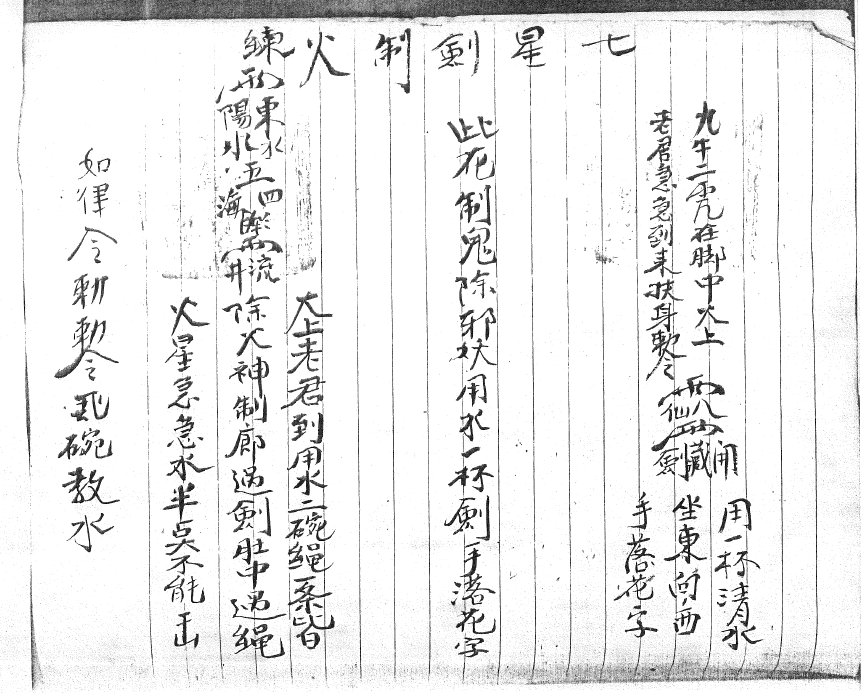 七星劍制火
用一杯清水
坐東向西
手落花字
九牛二虎在脚中太上
老君急急到来扶身敕令
雨八開
仙劍藏
此花制鬼除邪妖用水一杯劍手落花字
太上老君到用水二碗繩一条皆
東水四流除火神制廊過劍肚中過繩
陽水五海井
火星急急水半点不能
如律令敕敕令碗教水